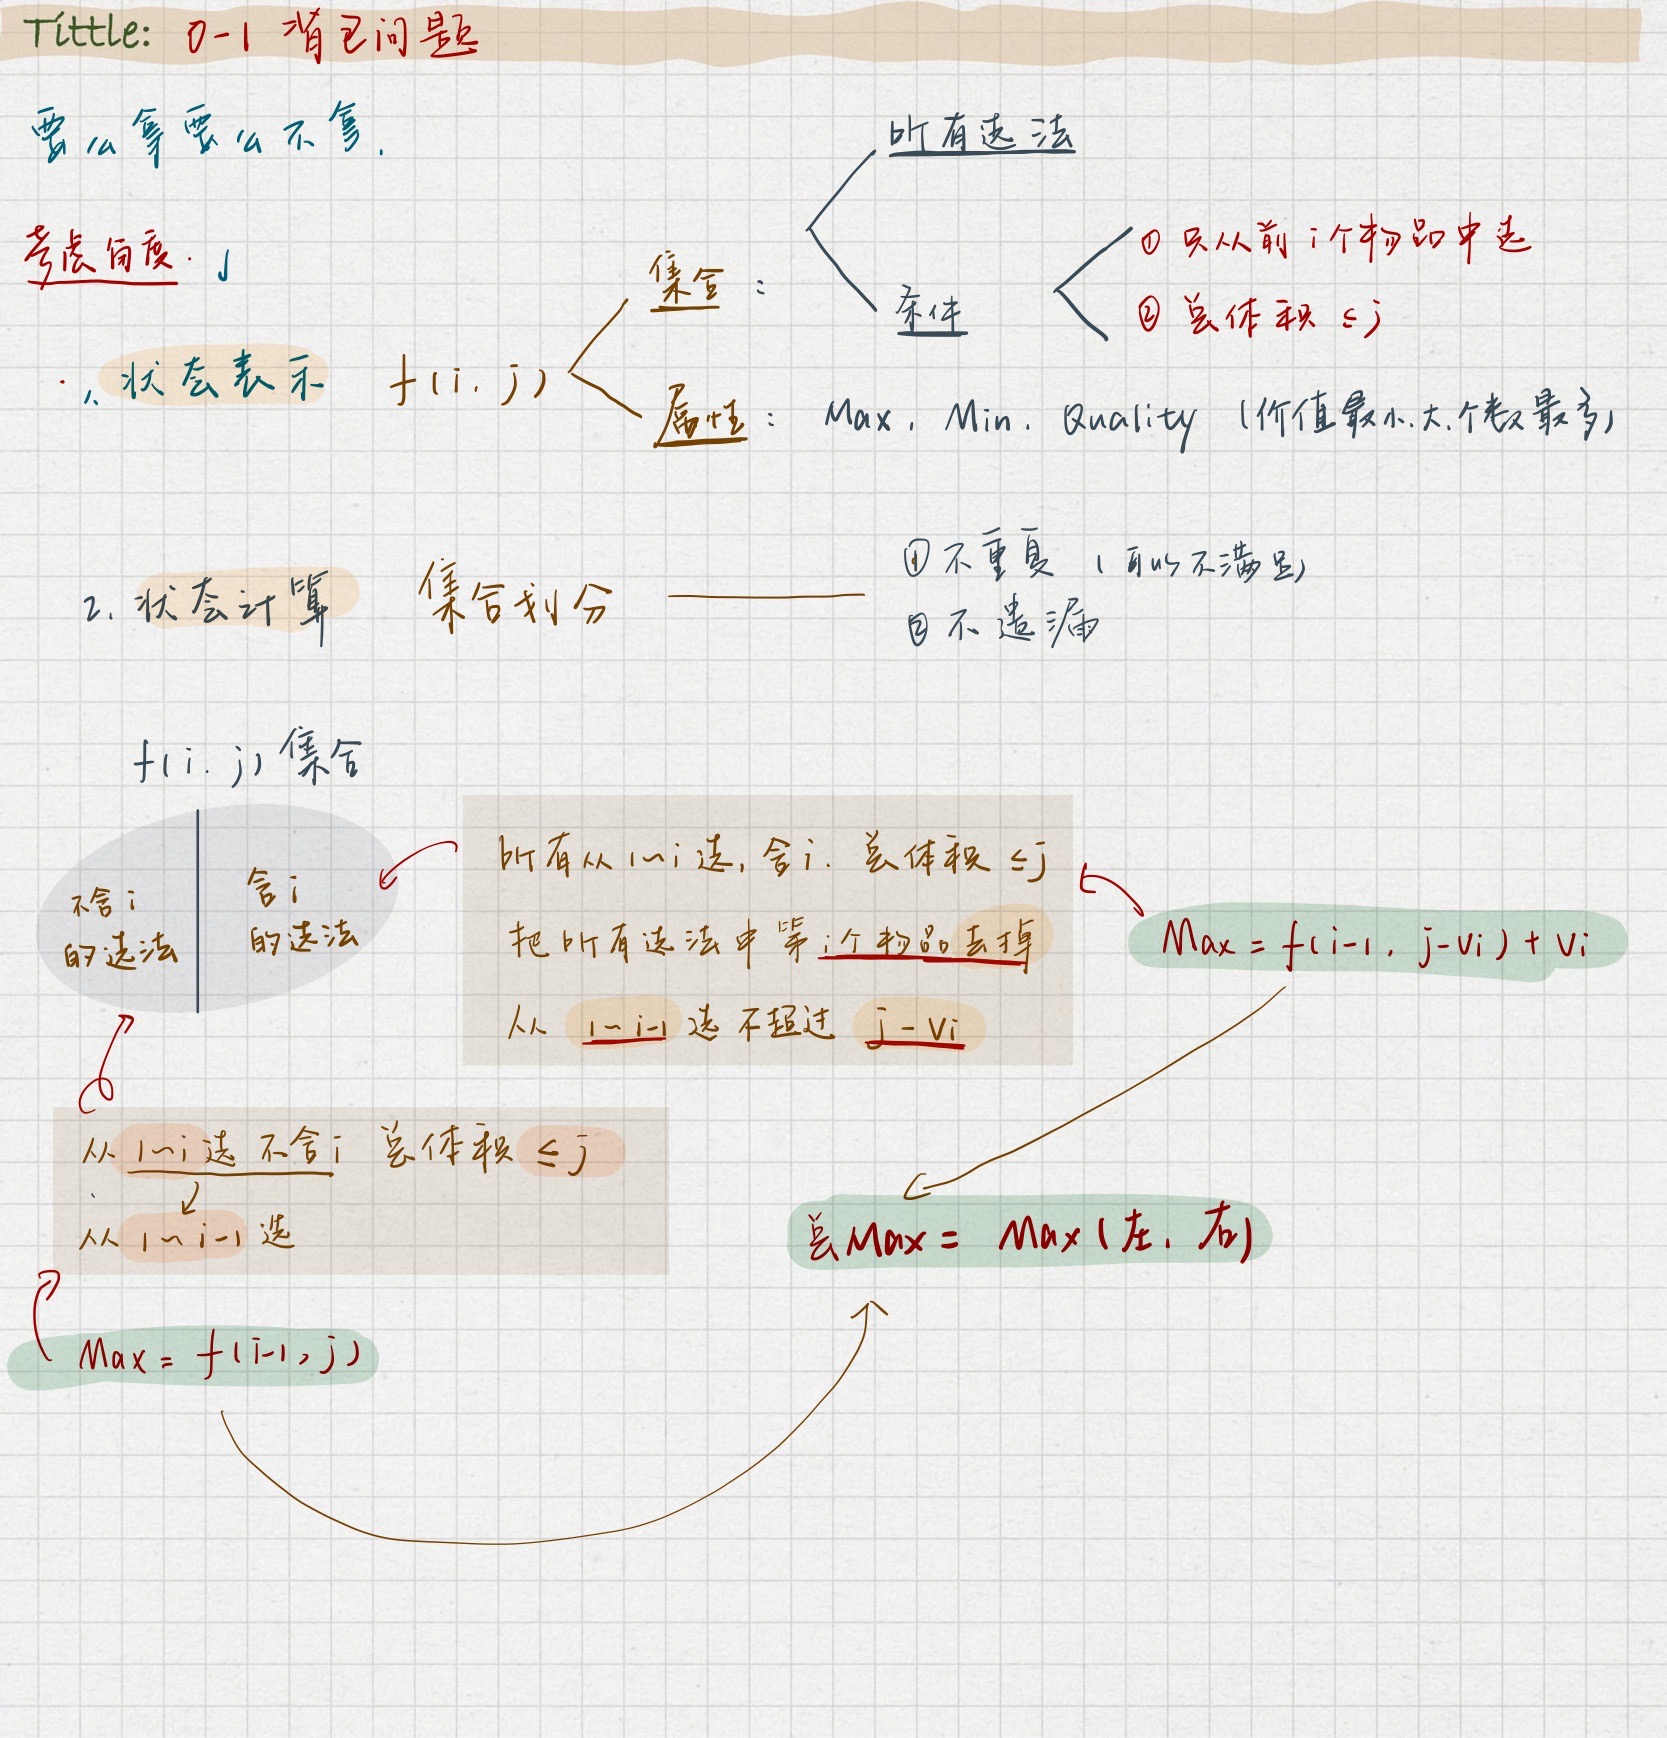 Tittle: 0-1 背包问题
要么拿要么不拿.
考虑角度.
所有选法
集合:
条件
① 只从前i个物品中选
② 总体积 ≤j
1. 状态表示 f(i. j)
属性: Max. Min. Quality (价值最小.大.个数最多)
2. 状态计算 集合划分
① 不重复 (可以不满足)
② 不遗漏
f(i. j) 集合
不含i
的选法
含i
的选法
所有从1~i选, 含i. 总体积 ≤j
把所有选法中第i个物品去掉
从 1~i-1 选 不超过 j-Vi
Max = f(i-1, j-Vi) + Vi
从 1~i 选 不含i 总体积 ≤j
从 1~i-1 选
总Max = Max(左, 右)
Max = f(i-1, j)